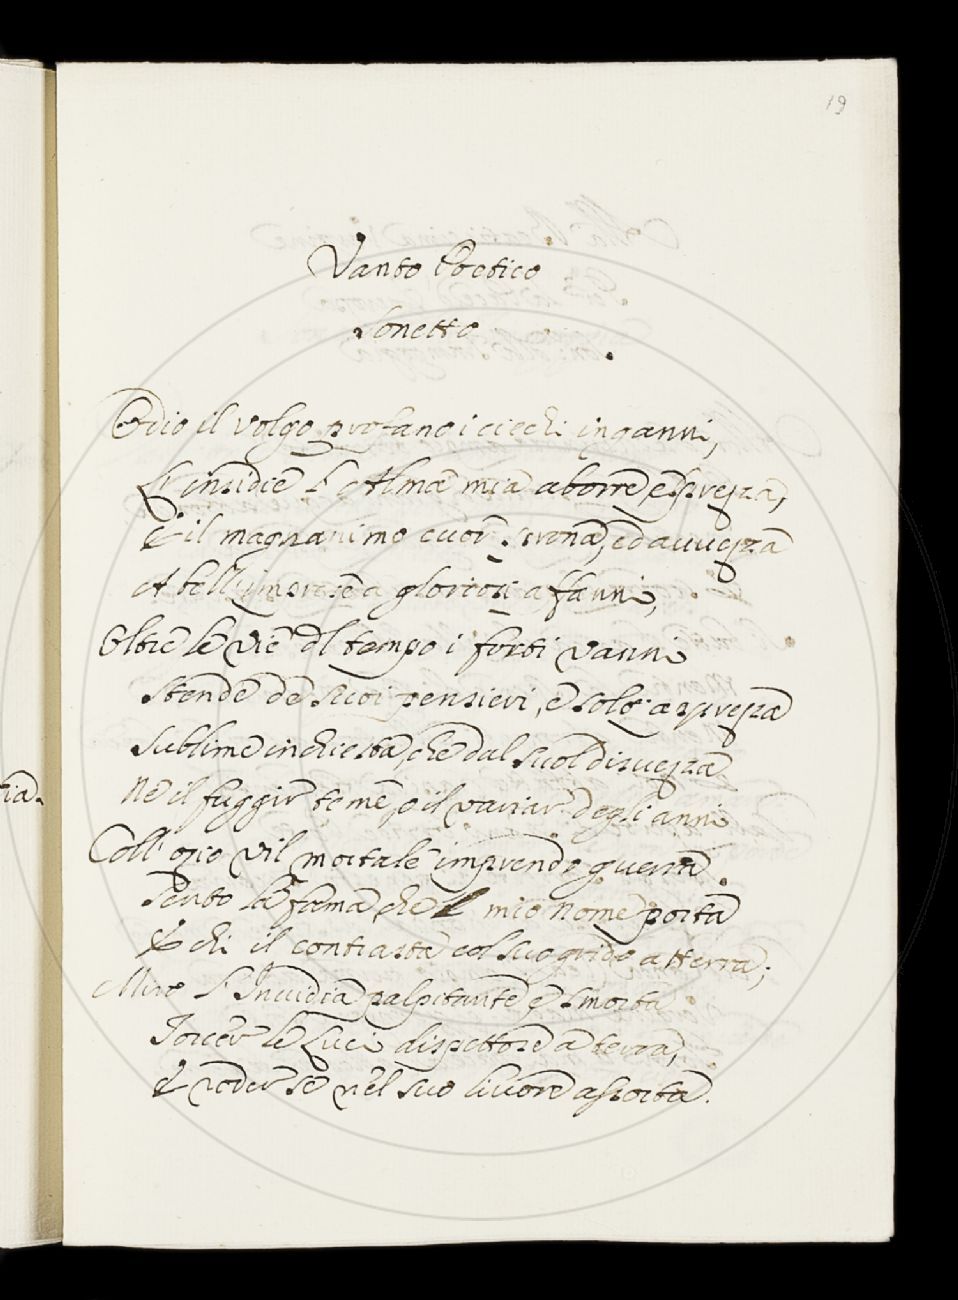 19
Vanto Poetico
Sonetto
Odio il volgo profano i ciechi inganni,
L'insidie l'Alma mia aborre e sprezza,
E il magnanimo cuor sprona, ed avvezza
A bell'imprese a gloriosi affanni,
Oltre le vie del tempo i forti vanni
Stende de suoi pensieri, e solo apprezza
Sublime inchiesta, che dal suol disvezza
Ne il fuggir teme, o il variar degli anni
Coll' ozio vil mortale imprendo guerra
Sento la fama che il mio nome porta
E chi il contrasta col suo grido atterra;
Miro l'Invidia palpitante e smorta
Torcer le Luci dispettose a terra,
E roder se nel suo livore assorta.
tia.